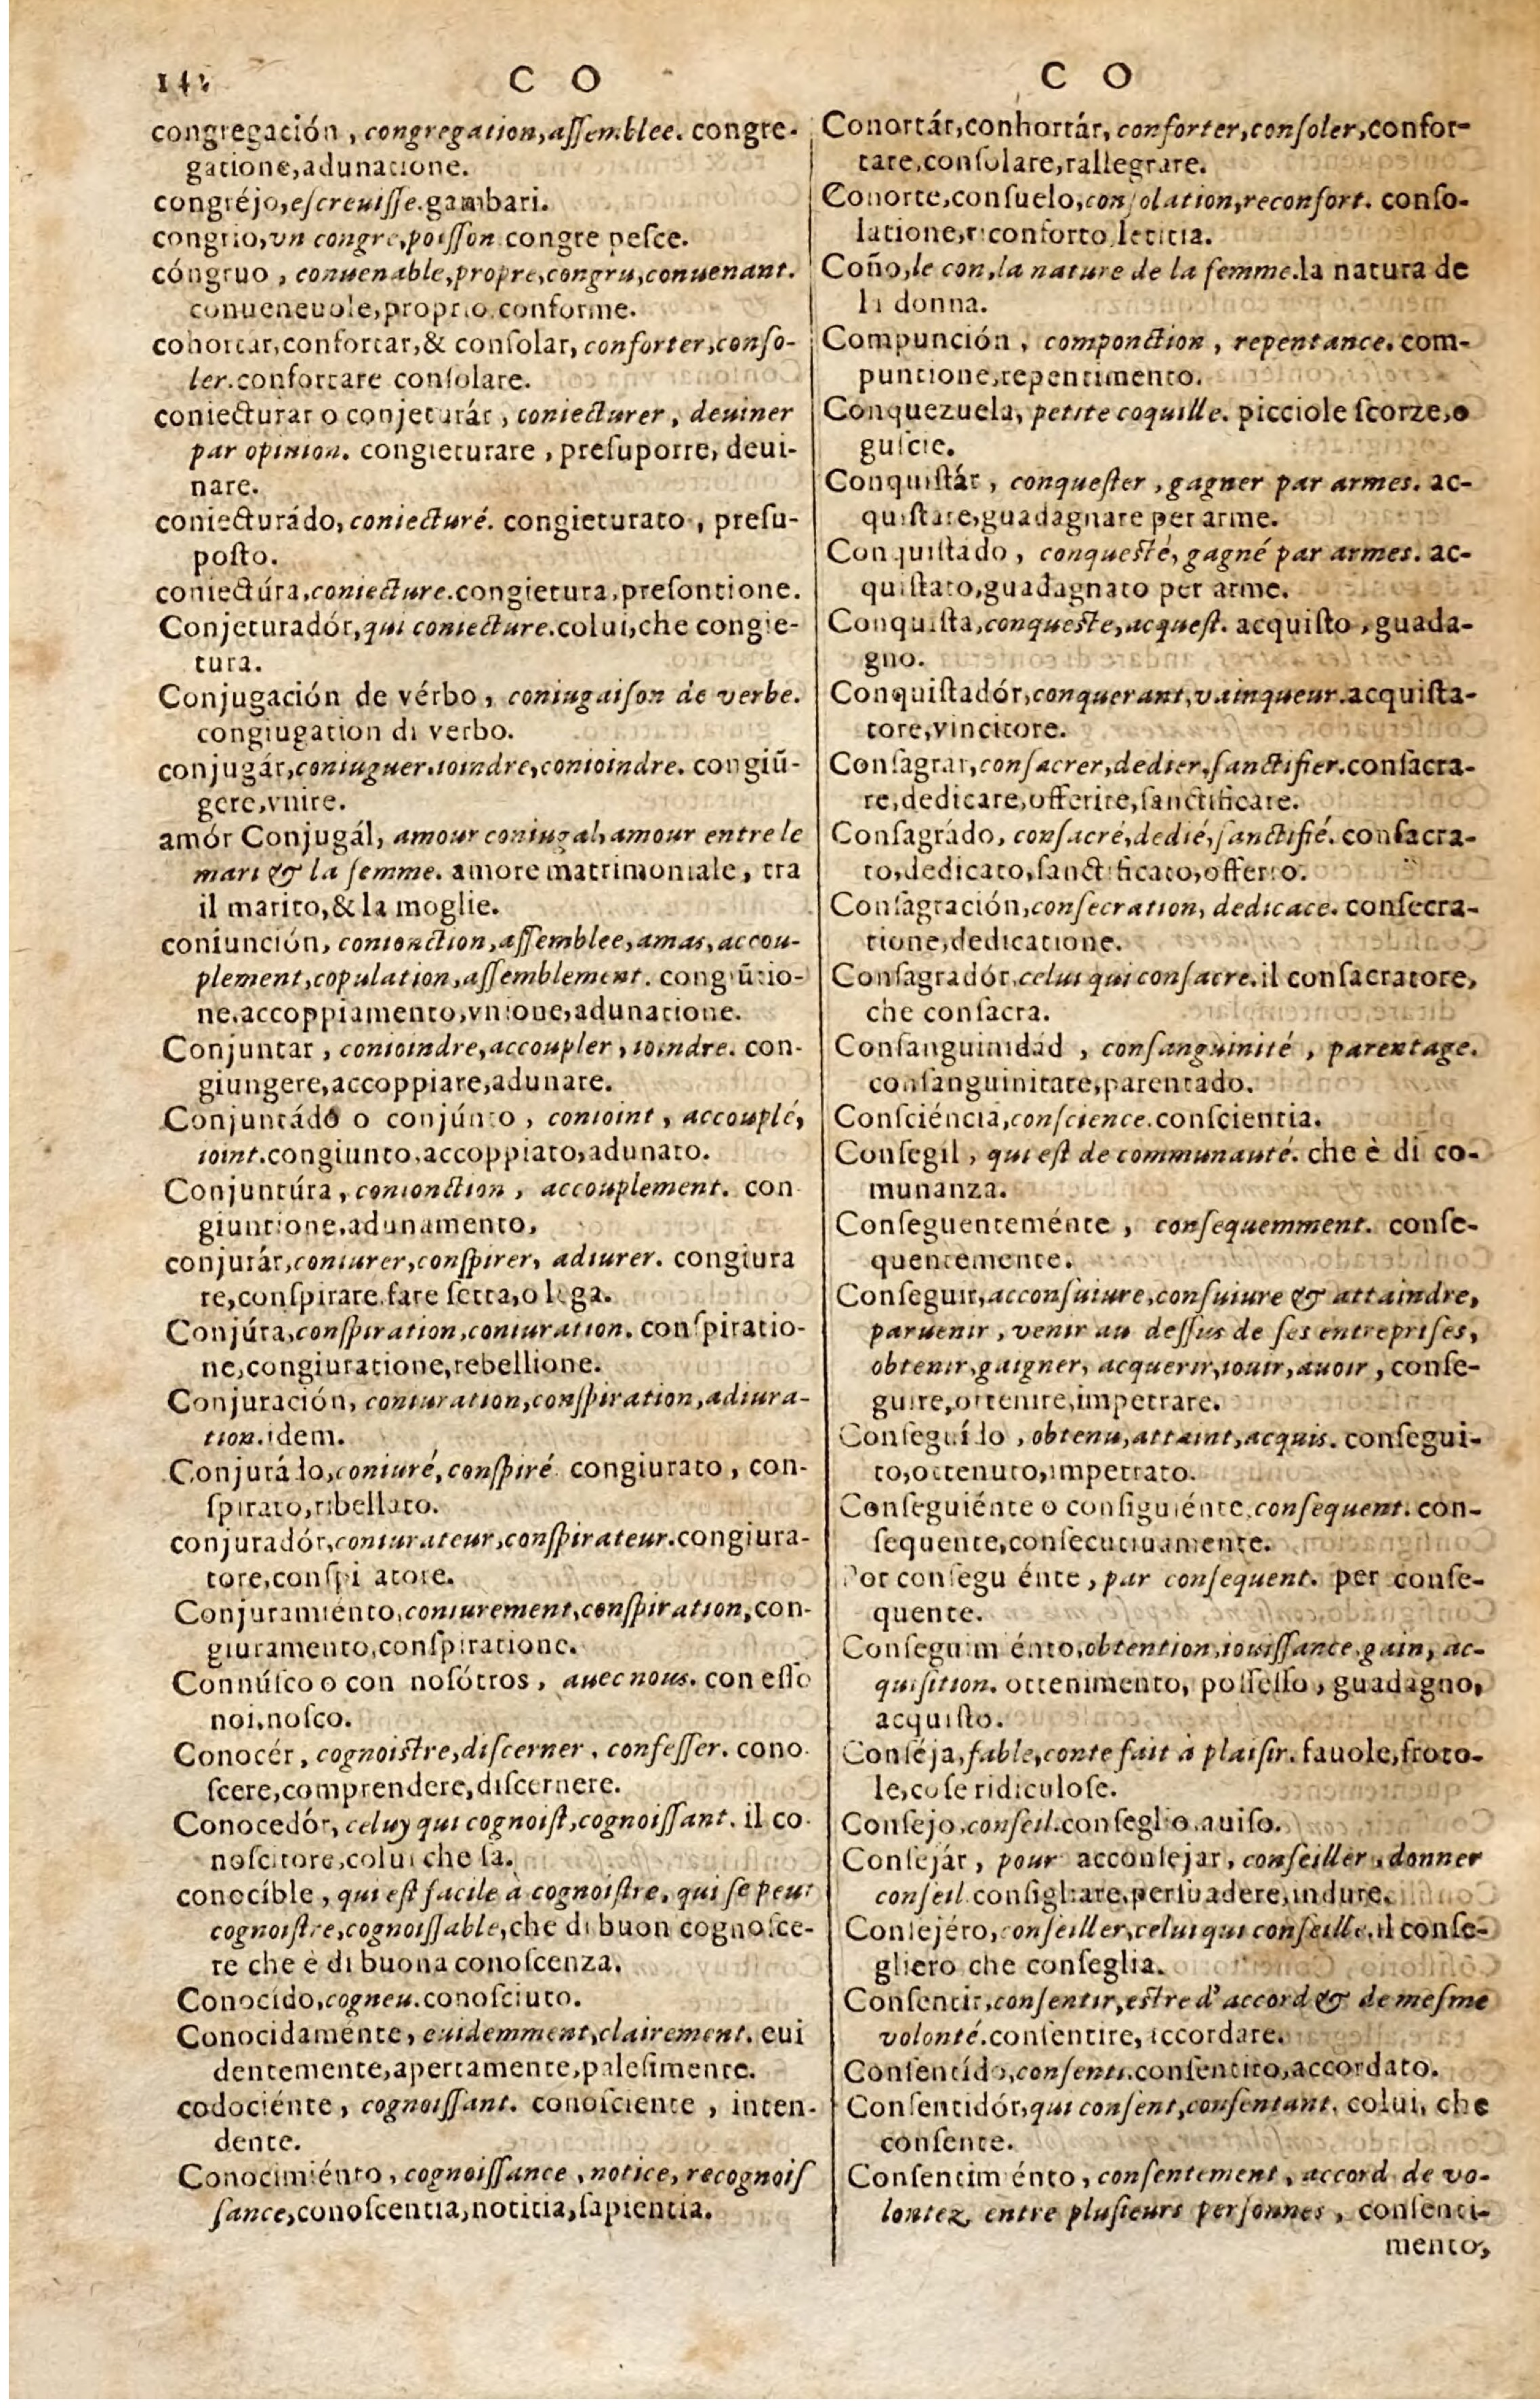 C O
C O
congregación, congregation, aſſemblee. congre-
gatione, adunatione.
congréjo, eſcreuiſſe. gambari.
congrio, vn congre, poiſſon congre peſce.
cóngruo, conuenable, propre, congru, conuenant.
conueneuole, proprio conforme.
cohortar, confortar, & conſolar, conforter, conſo-
ler. confortare conſolare.
coniecturar o conjeturár, coniecturer, deuiner
par opinion. congieturare, preſuporre, deui-
nare.
coniecturádo, coniecturé. congieturato, preſu-
poſto.
coniectúra, coniecture. congietura, preſontione.
Conjeturadór, qui coniecture. colui, che congie-
tura.
Conjugación de vérbo, coniugaiſon de verbe.
congiugation di verbo.
conjugár, coniuguer. ioindre, conioindre. congiū-
gere, vnire.
amór Conjugál, amour coniugal, amour entre le
mari & la femme. amore matrimoniale, tra
il marito, & la moglie.
coniunción, conionction, aſſemblee, amas, accou-
plement, copulation, aſſemblement. congiūtio-
ne. accoppiamento, vnione, adunatione.
Conjuntar, conioindre, accoupler, ioindre. con-
giungere, accoppiare, adunare.
Conjuntádo o conjúnto, conioint, accouplé,
ioint. congiunto, accoppiato, adunato.
Conjuntúra, conionction, accouplement. con
giuntione, adunamento,
conjurár, coniurer, conſpirer, adiurer. congiura
re, conſpirare. fare ſetta, o lega.
Conjúra, conſpiration, coniuration. conſpiratio-
ne, congiuratione, rebellione.
Conjuración, coniuration, conſpiration, adiura-
tion. idem.
Conjurádo, coniuré, conſpiré congiurato, con-
ſpirato, ribellato.
conjuradór, coniurateur, conſpirateur. congiura-
tore, conſpi atore.
Conjuramiénto, coniurement, conſpiration, con-
giuramento, conſpiratione.
Connúſco o con noſótros, auec nous. con eſſo
noi, noſco.
Conocér, cognoiſtre, diſcerner, confeſſer. cono
ſcere, comprendere, diſcernere.
Conocedór, celuy qui cognoiſt, cognoiſſant. il co
noſcitore, colui che ſa.
conocíble, qui eſt facile à cognoiſtre, qui ſe peut
cognoiſtre, cognoiſſable, che di buon cognoſce-
re che è di buona conoſcenza.
Conocído, cogneu. conoſciuto.
Conocidamente, euidemment, clairement. eui
dentemente, apertamente, paleſimente.
codociénte, cognoiſſant. conoſciente, inten-
dente.
Conocimiénto, cognoiſſance, notice, recognoiſ
ſance, conoſcentia, notitia, ſapientia.
Conortár, conhortár, conforter, conſoler, confor-
tare, conſolare, rallegrare.
Conorte, conſuelo, conſolation, reconfort. conſo-
latione, riconforto letitia.
Coño, le con, la nature de la femme. la natura de
la donna.
Compunción, componction, repentance. com-
puntione, repentimento.
Conquezuela, petite coquille. picciole ſcorze, o
guſcie.
Conquiſtár, conqueſter, gagner par armes. ac-
quiſtare, guadagnare per arme.
Conquiſtado, conqueſté, gagné par armes. ac-
quiſtato, guadagnato per arme.
Conquiſta, conqueſte, acqueſt. acquiſto, guada-
gno.
Conquiſtadór, conquerant, vainqueur. acquiſta-
tore, vincitore.
Conſagrar, conſacrer, dedier, ſanctifier. conſacra-
re, dedicare, offerire, ſanctificare.
Conſagrádo, conſacré, dedié, ſanctifié. conſacra-
to, dedicato, ſanctificato, offerto.
Conſagración, conſecration, dedicace. conſecra-
tione, dedicatione.
Conſagradór, celui qui conſacre. il conſacratore,
che conſacra.
Conſanguinidád, conſanguinité, parentage.
conſanguinitate, parentado.
Conſciéncia, conſcience. conſcientia.
Conſegil, qui eſt de communauté. che è di co-
munanza.
Conſeguenteménte, conſequemment. conſe-
quentemente.
Conſeguir, acconſuiure, conſuiure & attaindre,
paruenir, venir au deſſus de ſes entrepriſes,
obtenir, gaigner, acquerir, iouir, auoir, conſe-
guire, ottenire, impetrare.
Conſeguído, obtenu, attaint, acquis. conſegui-
to, ottenuto, impetrato.
Conſeguiénte o conſiguiénte, conſequent. con-
ſequente, conſecutiuamente.
Por conſegu énte, par conſequent. per conſe-
quente.
Conſeguim énto, obtention, iouiſſance, gain, ac-
quiſition. ottenimento, poſſeſſo, guadagno,
acquiſto.
Conſéja, fable, conte fait à plaiſir. fauole, froto-
le, coſe ridiculoſe.
Conſejo, conſeil. conſeglio, auiſo.
Conſejár, pour acconſejar, conſeiller, donner
conſeil. conſigliare, perſuadere, indure.
Conſejéro, conſeiller, celui qui conſeille, il conſe-
gliero che conſeglia.
Conſentir, conſentir, eſtre d'accord & de meſme
volonté. conſentire, accordare.
Conſentído, conſenti. conſentito, accordato.
Conſentidór, qui conſent, conſentant. colui, che
conſente.
Conſentim énto, conſentement, accord de vo-
lontez entre pluſieurs perſonnes, conſenti-
mento,